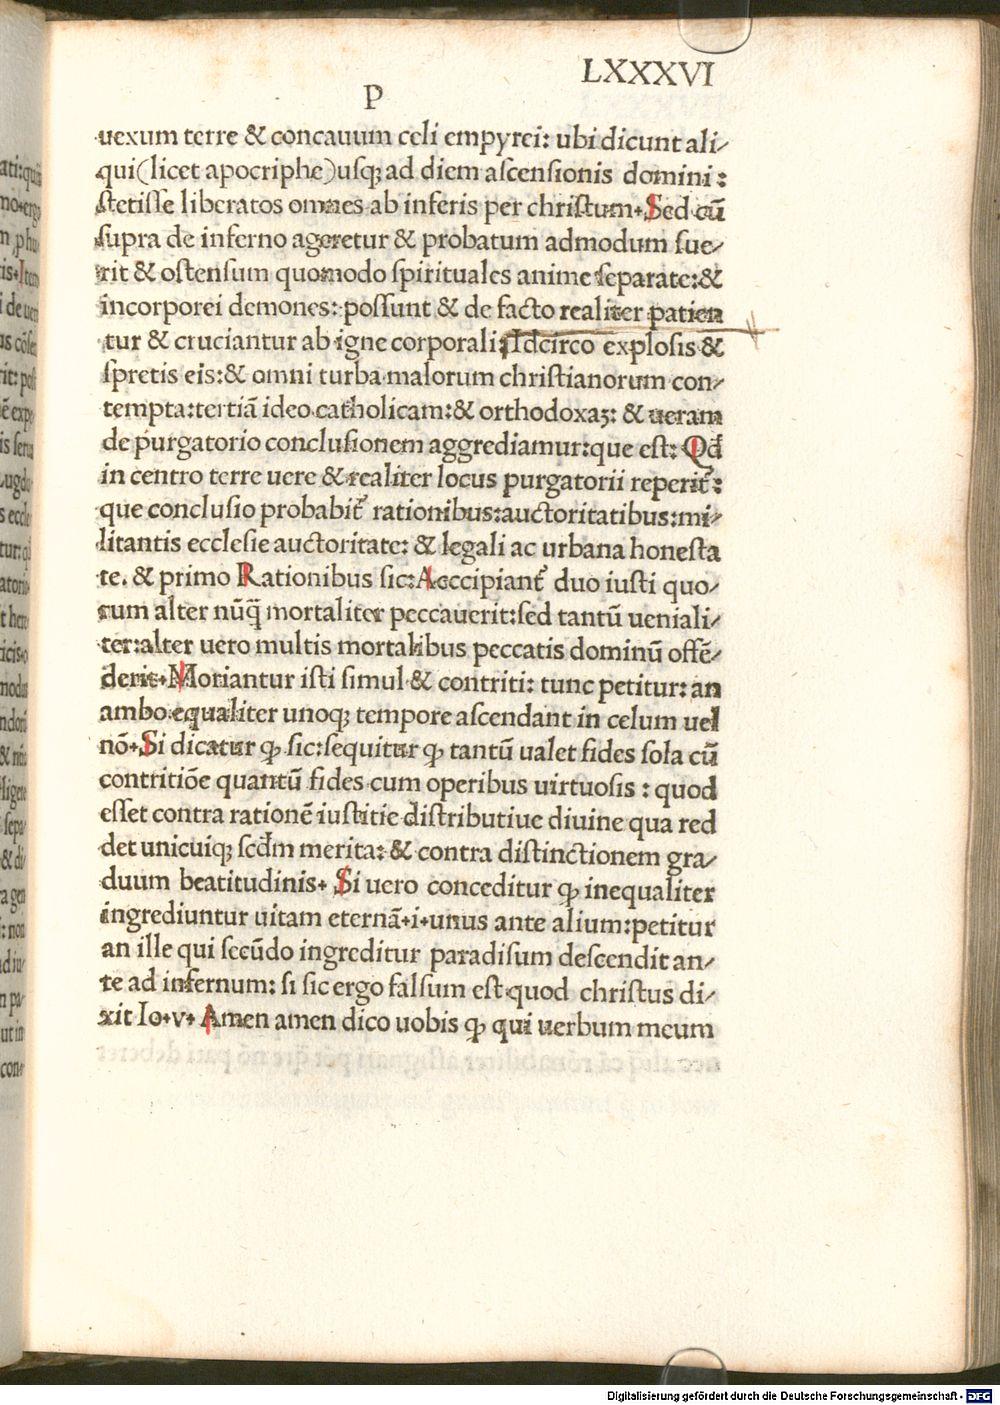 LXXXVI
P
uexum terre & concauum celi empyrei: ubi dicunt ali/
qui(licet apocriphe)usqꝫ ad diem ascensionis domini:
stetisse liberatos omnes ab inferis per christum. Sed cū
supra de inferno ageretur & probatum admodum fue/
rit & ostensum quomodo spirituales anime separate:&
incorporei demones: possunt & de facto realiter patien
tur & cruciantur ab igne corporali: Idcirco explosis &
spretis eis:& omni turba malorum christianorum con/
tempta:tertiā ideo catholicam:& orthodoxaꝫ: & ueram
de purgatorio conclusionem aggrediamur:que est: Qd̄
in centro terre uere & realiter locus purgatorii reperit᷑:
que conclusio probabit᷑ rationibus:auctoritatibus:mi/
litantis ecclesie auctoritate: & legali ac urbana honesta
te. & primo Rationibus sic:Aeccipiant᷑ duo iusti quo/
rum alter nūq̄ mortaliter peccauerit:sed tantū ueniali/
ter:alter uero multis mortalibus peccatis dominū offē/
derit. Moriantur isti simul & contriti: tunc petitur: an
ambo equaliter unoqꝫ tempore ascendant in celum uel
nō. Si dicatur ꝙ sic:sequitur ꝙ tantū ualet fides sola cū
contritiōe quantū fides cum operibus uirtuosis : quod
esset contra rationē iustitie distributiue diuine qua red
det unicuiqꝫ scd̄m merita: & contra distinctionem gra/
duum beatitudinis. Si uero conceditur ꝙ inequaliter
ingrediuntur uitam eternā.i.unus ante alium:petitur
an ille qui secūdo ingreditur paradisum descendit an/
te ad infernum: si sic ergo falsum est quod christus di/
xit Io.v. Amen amen dico uobis ꝙ qui uerbum meum
Digitalisierung gefördert durch die Deutsche Forschungsgemeinschaft - DFG